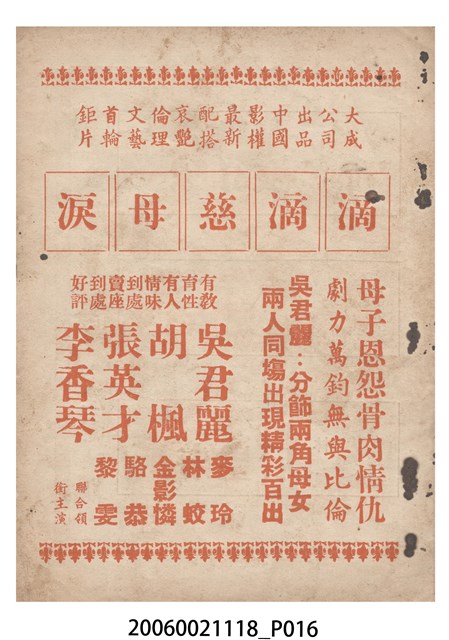 大成公司出品中國影權最新配搭哀艷倫理文藝首輪鉅片
滴滴慈母淚
母子恩怨骨肉情仇
劇力萬鈞無與比倫
吳君麗：分飾兩角母女
兩人同塲出現精彩百出
有教育性
有人情味
到處賣座
到處好評
吳君麗
胡楓
張英才
李香琴
麥玲
林蛟
金影憐
駱恭
黎雯
聯合領
銜主演
20060021118_P016